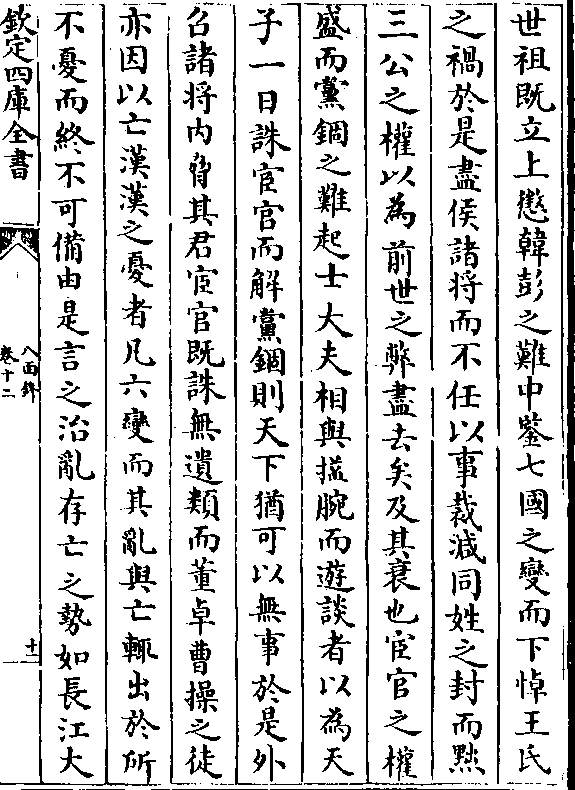 世祖既立上懲韓彭之難中鑒七國之變而下悼王氏
之禍於是盡侯諸將而不任以事裁減同姓之封而黜
三公之權以為前世之弊盡去矣及其衰也宦官之權
盛而黨錮之難起士大夫相與搤腕而遊談者以為天
子一日誅宦官而解黨錮則天下猶可以無事於是外
召諸将内脅其君宦官既誅無遺類而董卓曹操之徒
亦因以亡漢漢之憂者凡六變而其亂與亡輒出於所
不憂而終不可備由是言之治亂存亡之勢如長江大
欽定四庫全書
八面鋒
卷十二
十